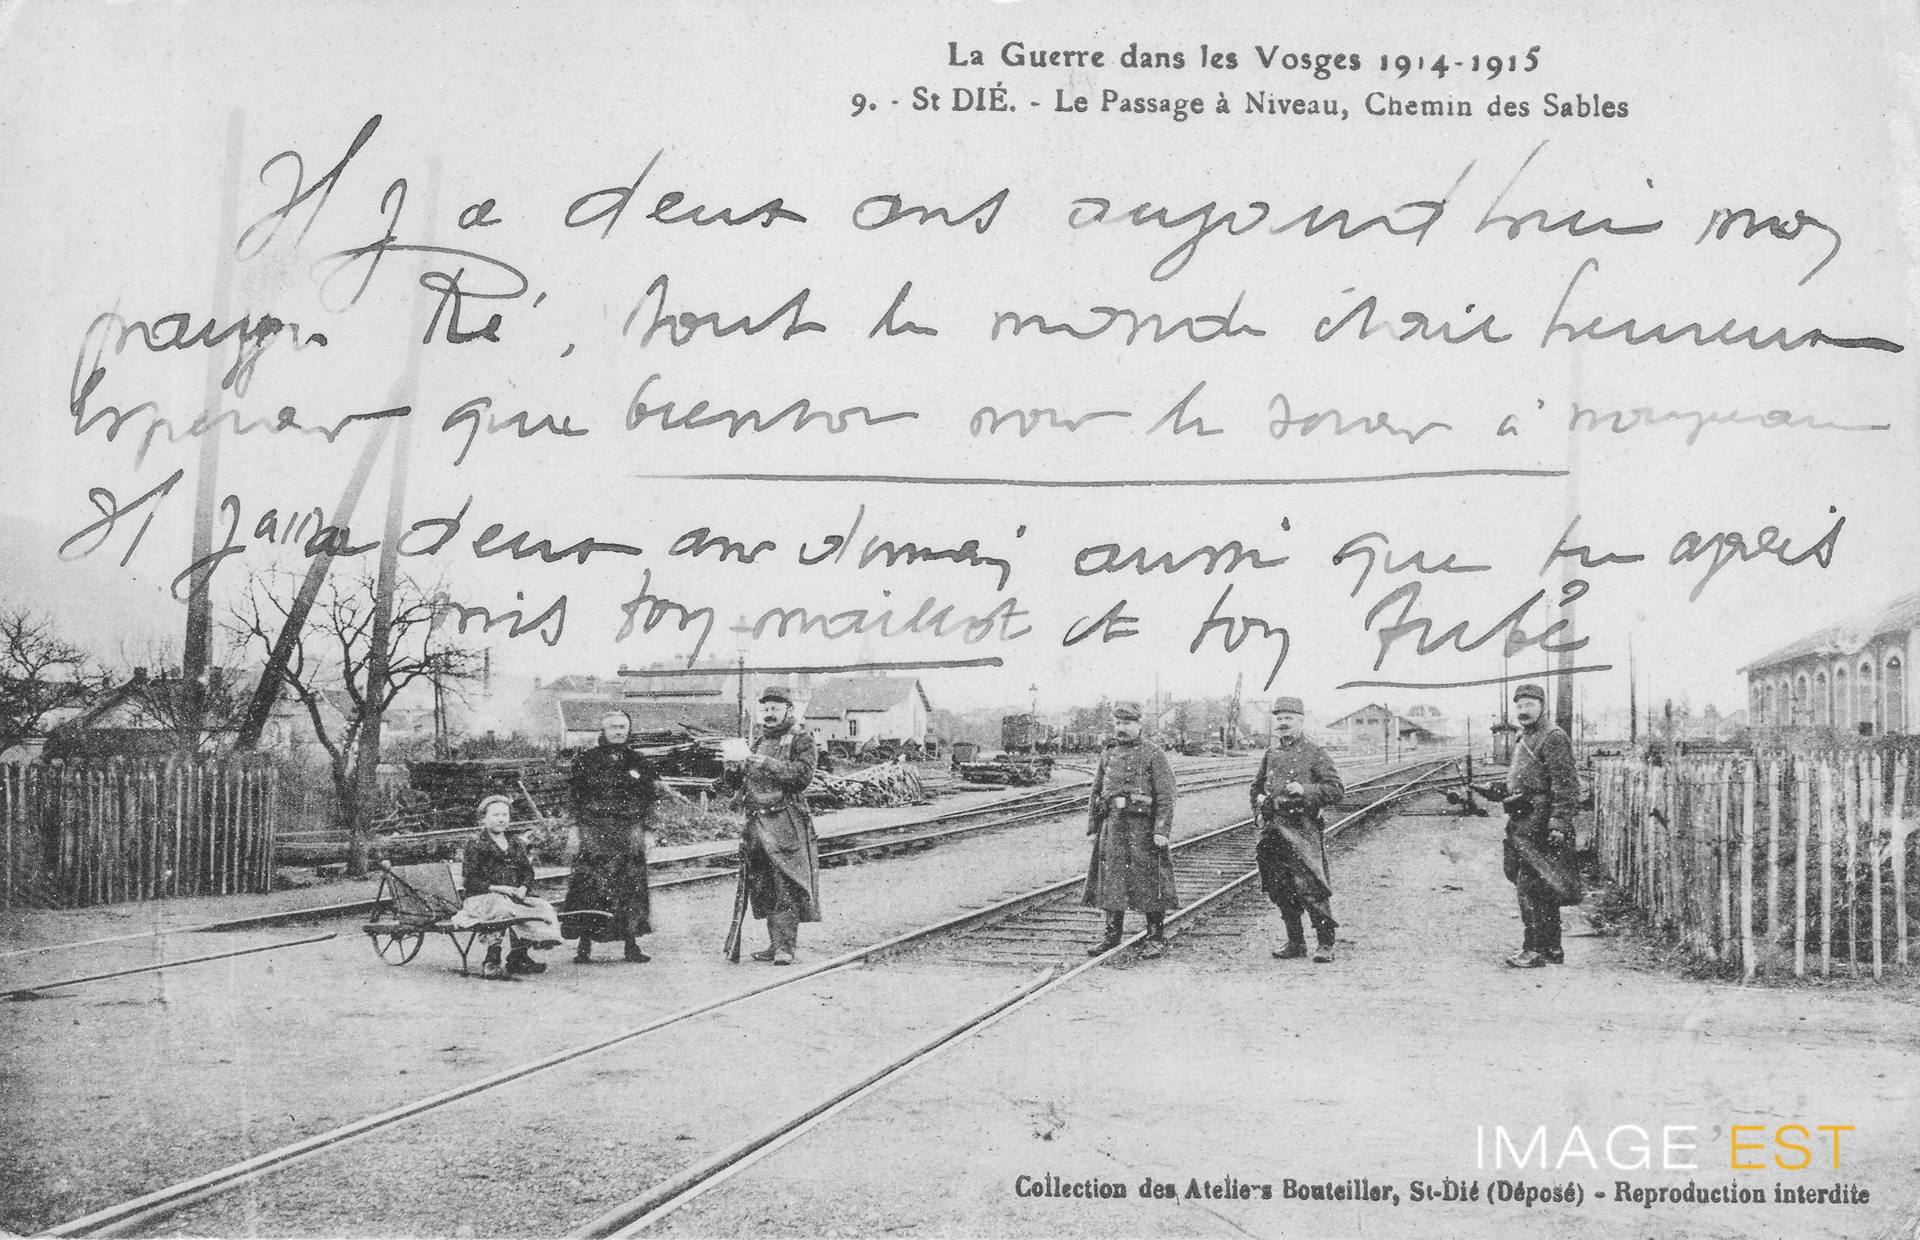 La Guerre dans les Vosges 1914-1915
9. - St DIÉ. - Le Passage à Niveau, Chemin des Sables
Il y a deux ans aujourd'hui mon
pauvre Ré, tout le monde était heureux
Esperons que bientot nous le serons à nouveau
Il y aura deux ans demain aussi que tu après
mis ton maillot et ton
IMAGE EST
Collection des Ateliers Bouteiller, St-Dié (Déposé) - Reproduction interdite